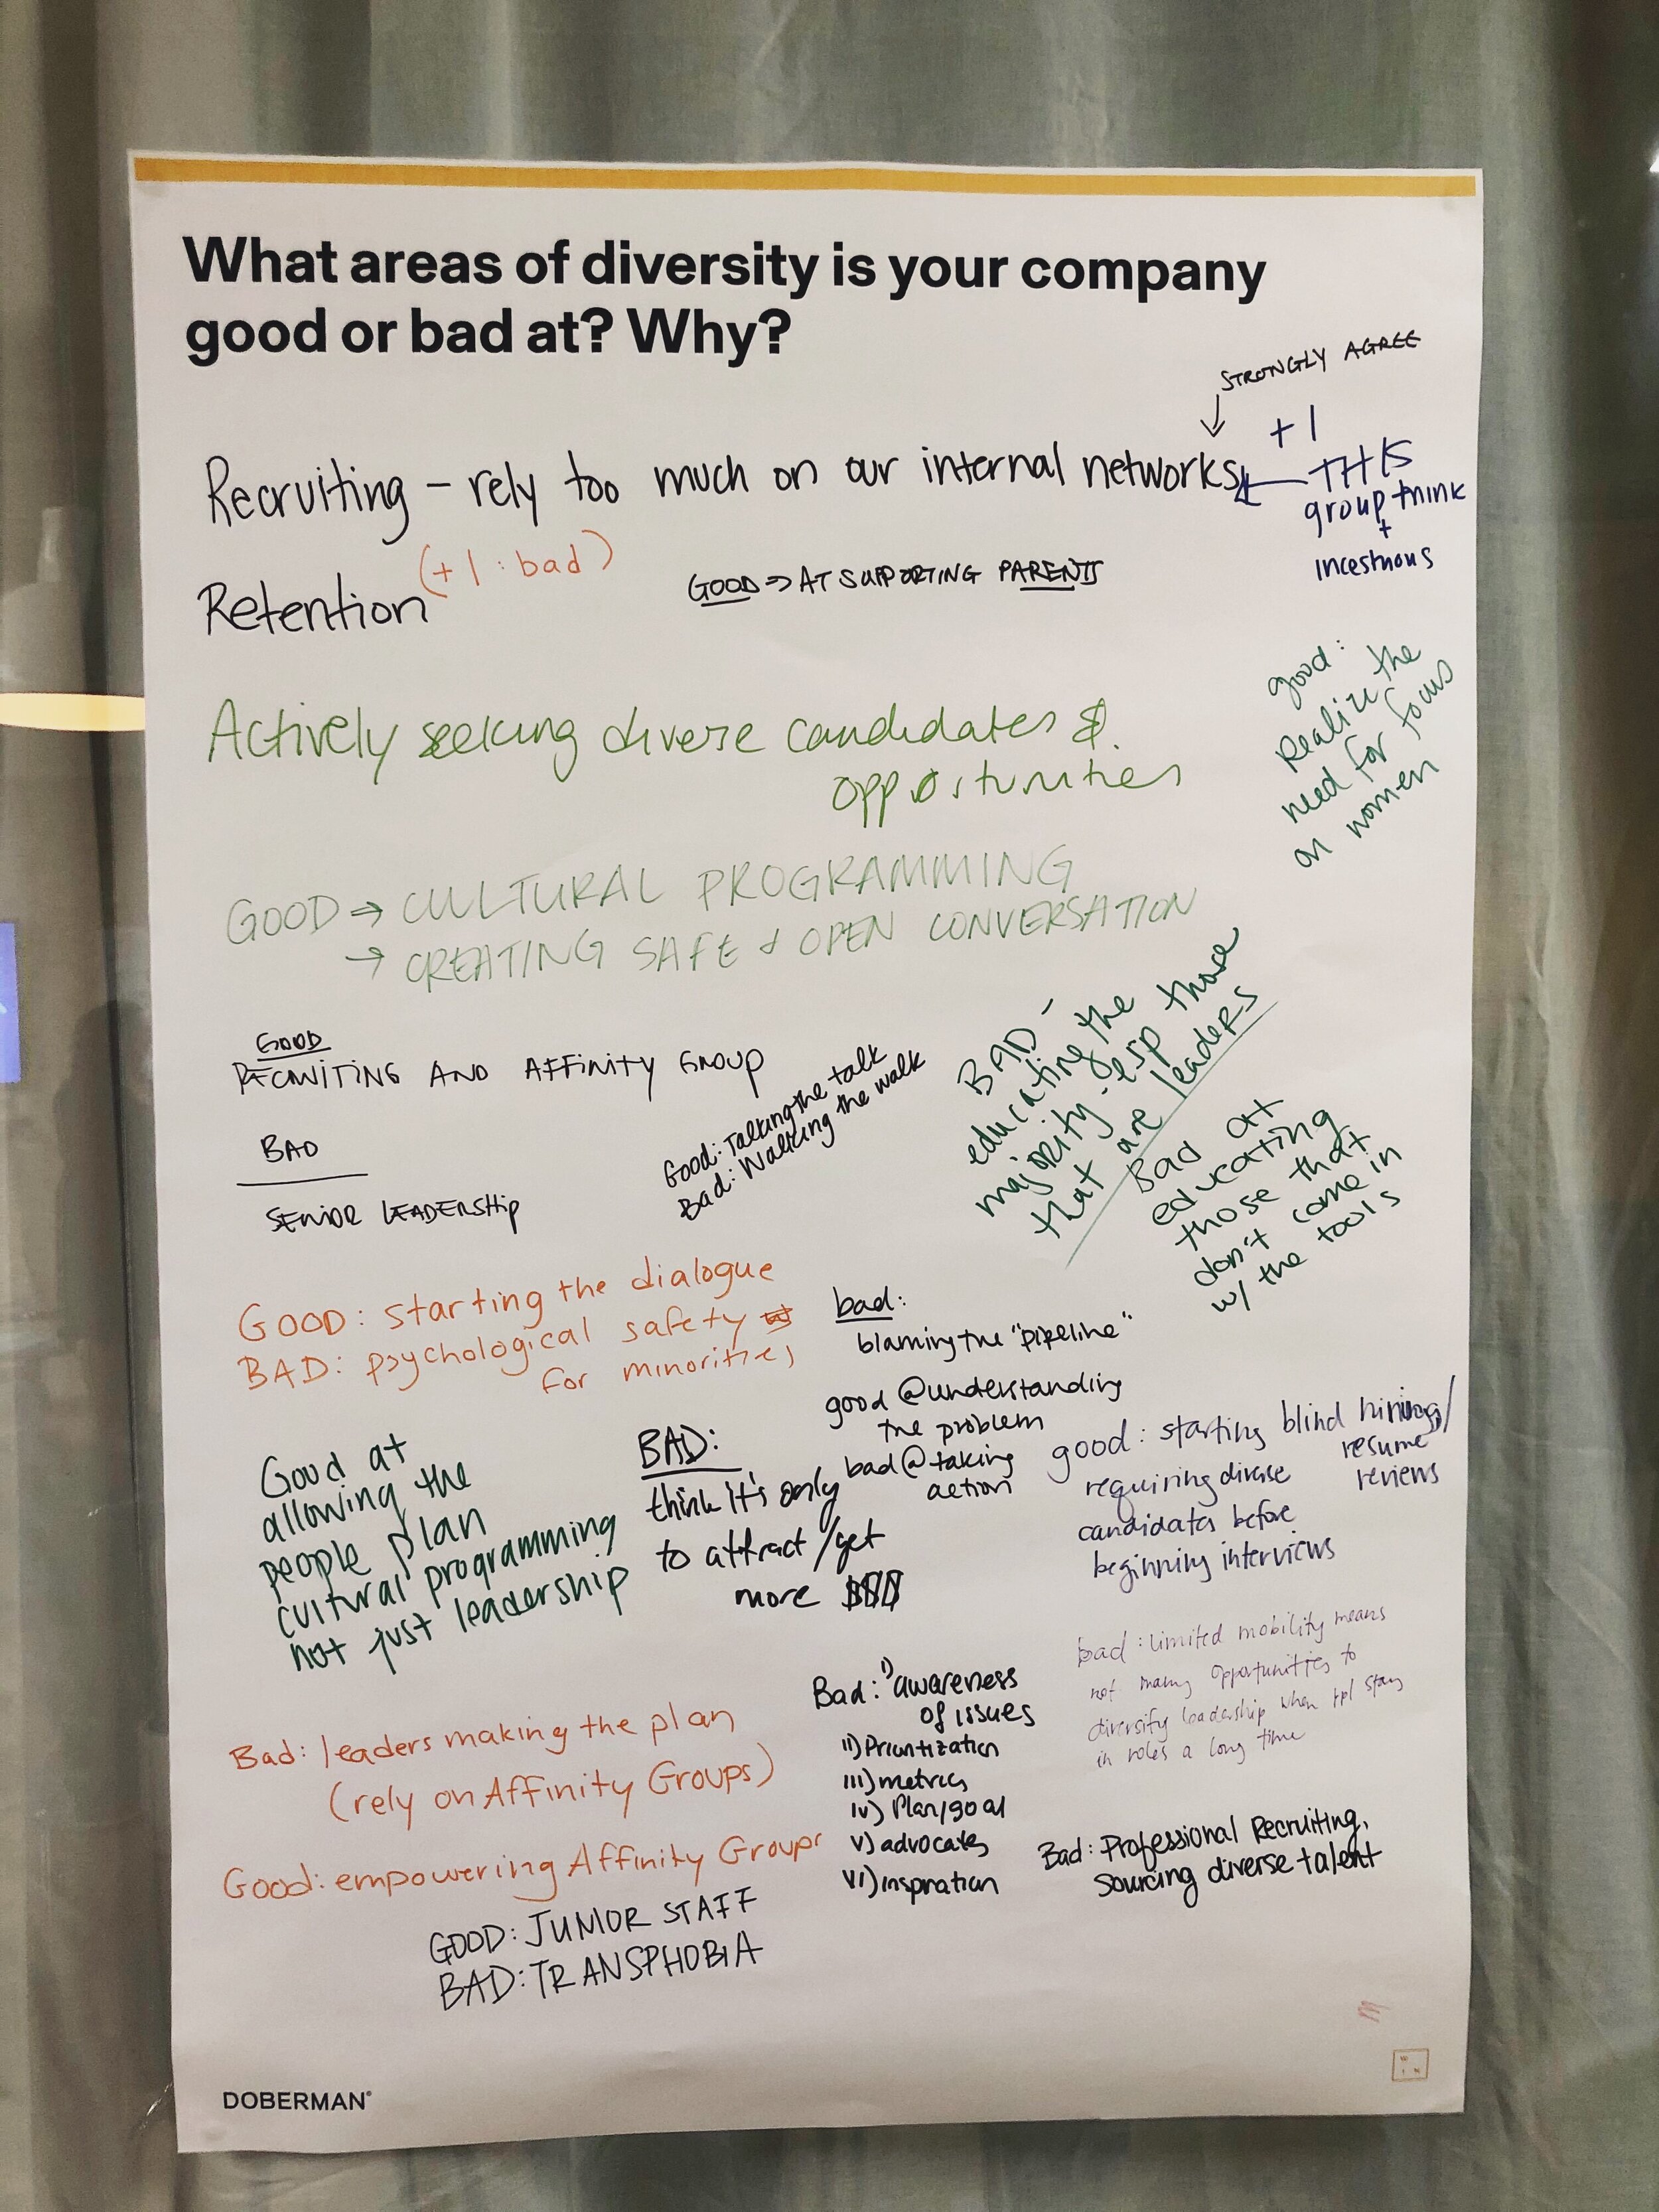 What areas of diversity is your company
good or bad at? Why?
STRONGLY AGREE
+1
Recruiting - rely too much on our internal networks
THIS
group think
+
incestuous
(+1 : bad)
Retention
GOOD => AT SUPPORTING PARENTS
good:
Realize the
need for focus
on women
Actively seeking diverse candidates &
opportunities
GOOD → CULTURAL PROGRAMMING
→ CREATING SAFE & OPEN CONVERSATION
GOOD
RECRUITING AND AFFINITY GROUP
BAD
SENIOR LEADERSHIP
Good: Talking the talk
Bad: Walking the walk
BAD -
educating the
majority - esp those
that are leaders
Bad at
educating
those that
don't come in
w/ the tools
GOOD: starting the dialogue
BAD: psychological safety
for minorities
bad:
blaming the "pipeline"
good @understanding
the problem
bad @taking
action
good: starting blind hiring/
resume
reviews
requiring diverse
candidates before
beginning interviews
Good at
allowing the
people plan
cultural programming
not just leadership
BAD:
think it's only
to attract/get
more $$$
bad: limited mobility means
not many opportunities to
diversify leadership when ppl stay
in roles a long time
Bad: i) awareness
of issues
ii) Prioritization
iii) metrics
iv) Plan/goal
v) advocates
vi) inspiration
Bad: leaders making the plan
(rely on Affinity Groups)
Good: empowering Affinity Groups
Bad: Professional Recruiting,
Sourcing diverse talent
GOOD: JUNIOR STAFF
BAD: TRANSPHOBIA
DOBERMAN®